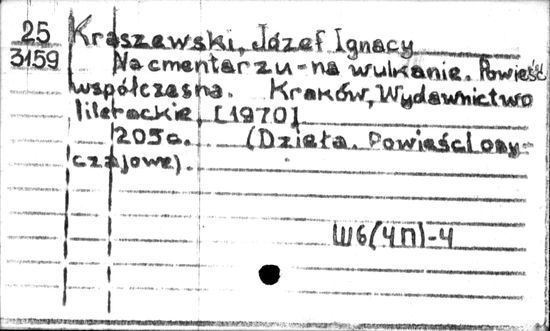 25
3159
Kraszewski, Józef Ignacy
Na cmentarzu - na wulkanie. Powieść
współczesna. Kraków, Wydawnictwo
literackie, [1970]
205c. (Dzieła. Powieści oby-
czajowe).
Ш6(4П)-4